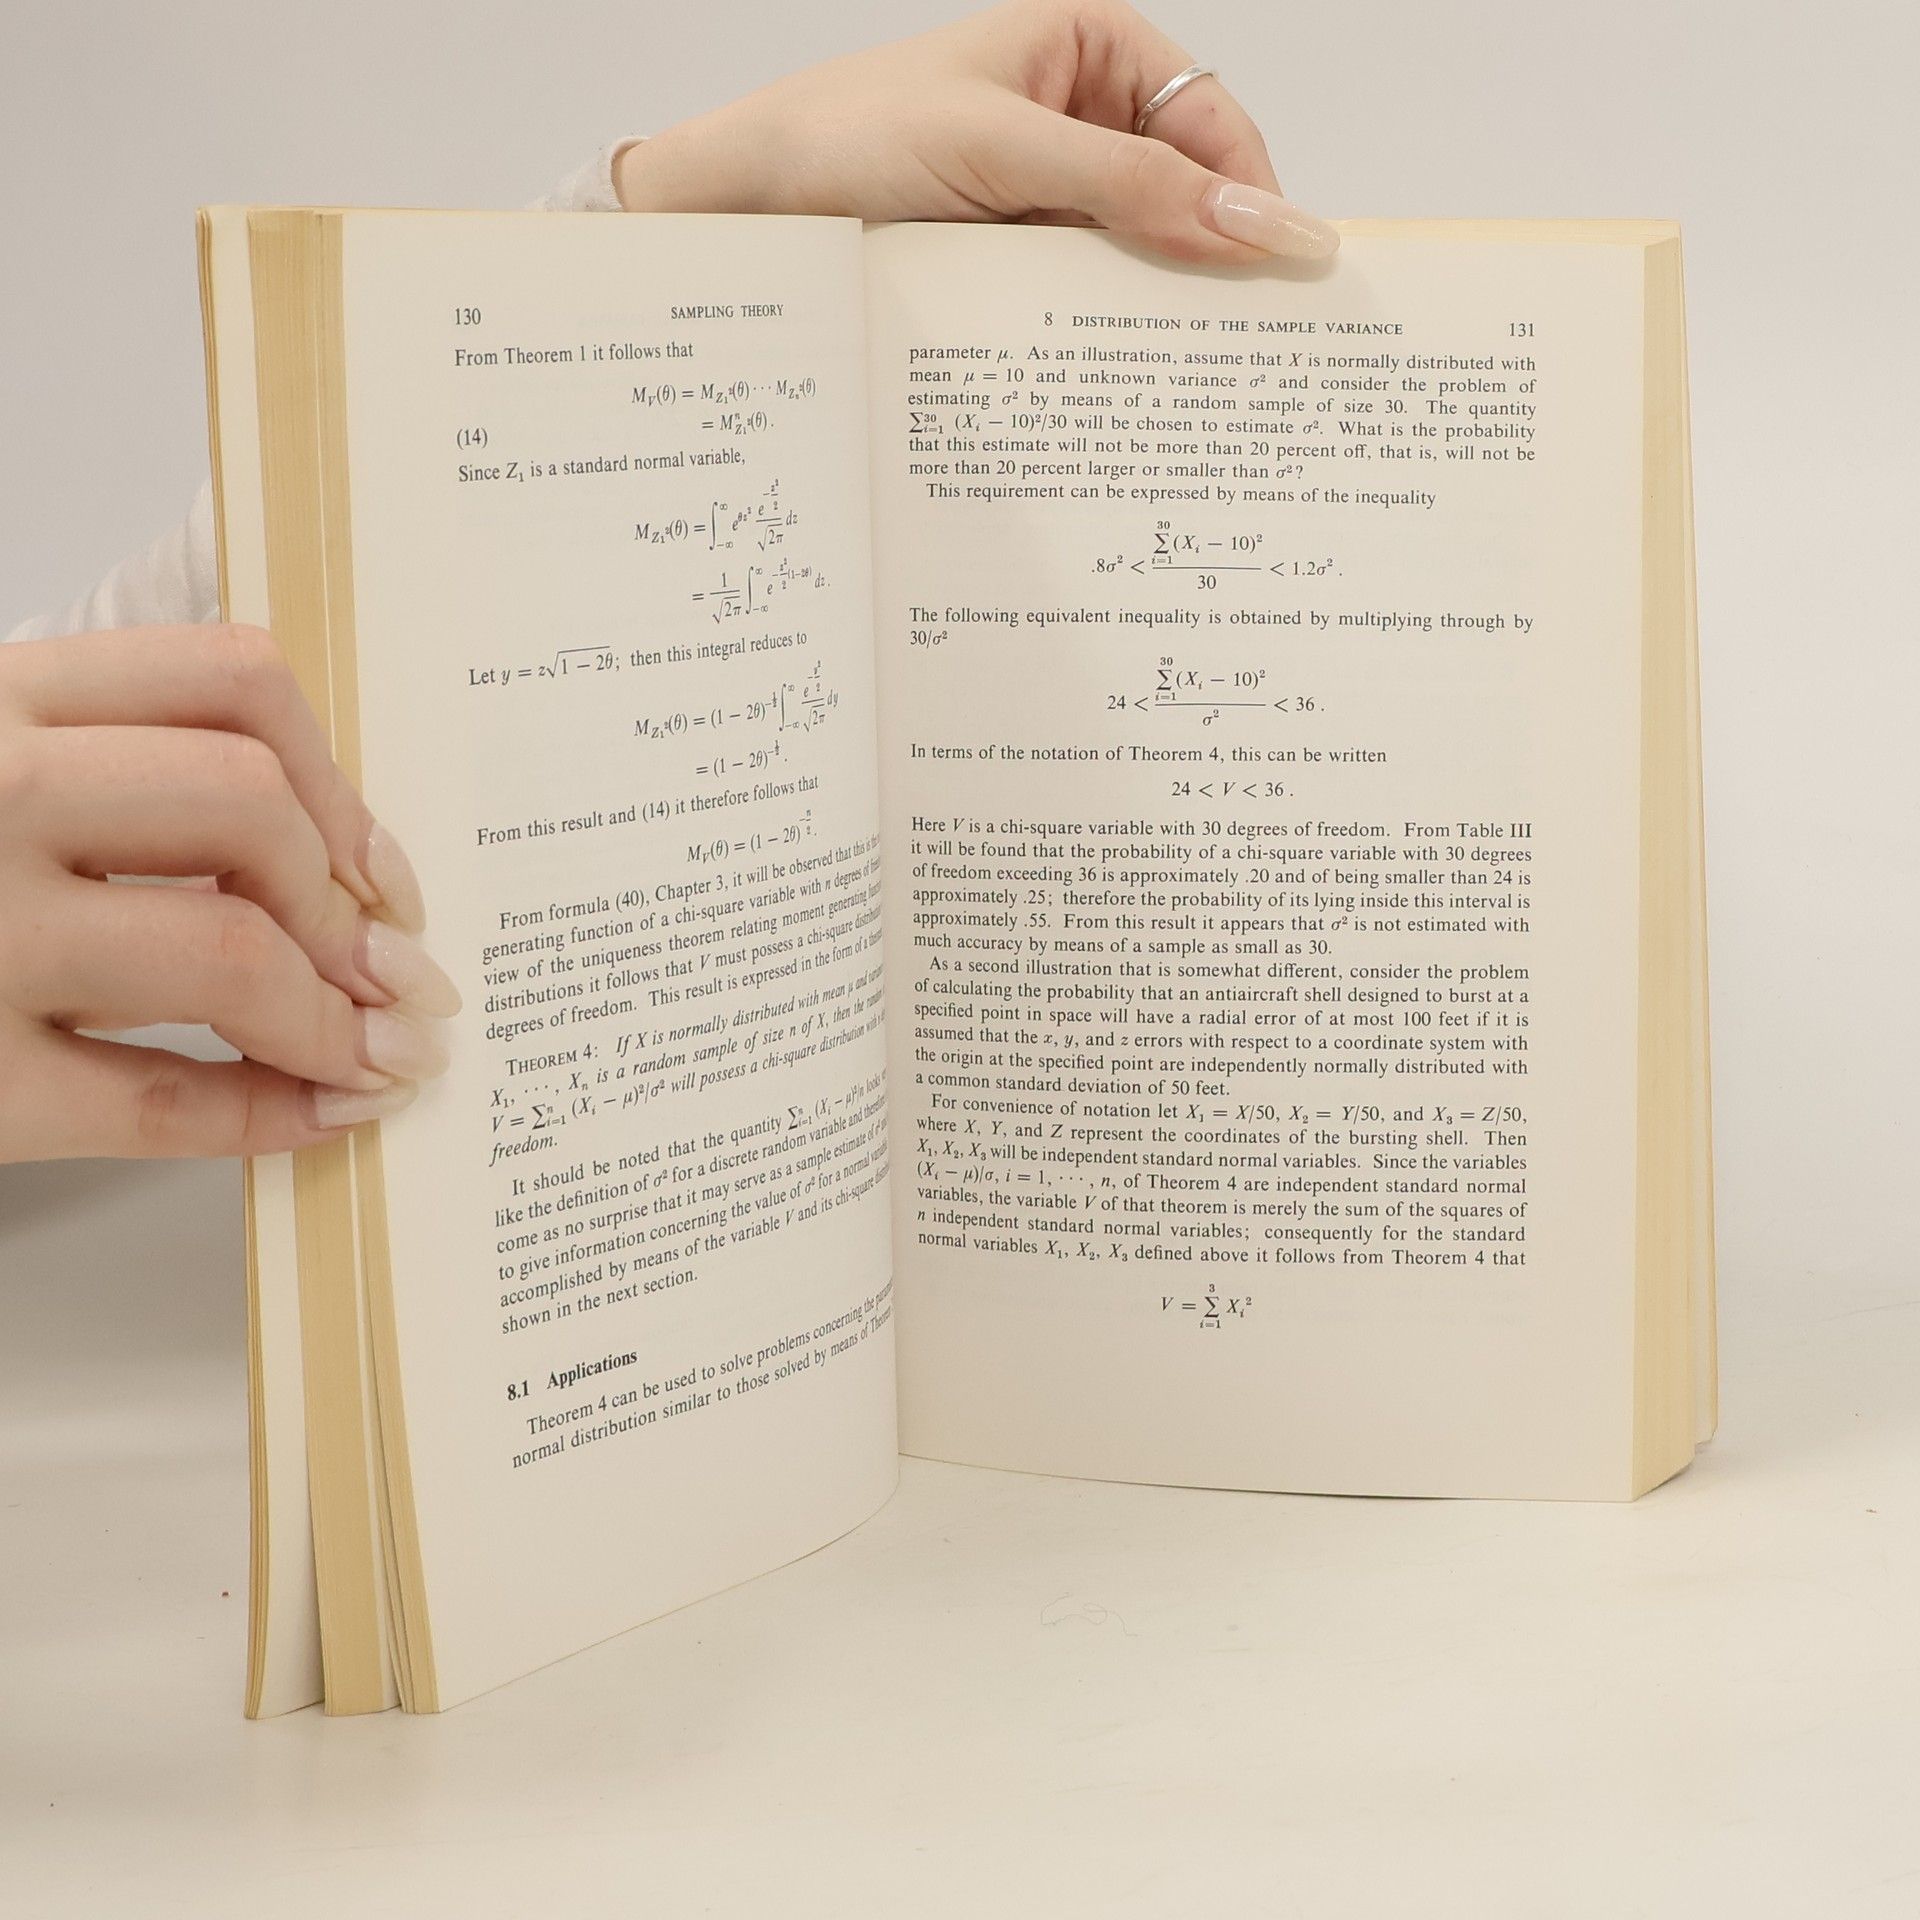 130 SAMPLING THEORY
From Theorem 1 it follows that
M_V(θ) = M_{Z₁²}(θ) ⋯ M_{Zₙ²}(θ)
(14) = Mⁿ_{Z₁²}(θ).
Since Z₁ is a standard normal variable,
M_{Z₁²}(θ) = ∫_{-∞}^{∞} e^{θz²} e^{-z²/2}/√2π dz
= 1/√2π ∫_{-∞}^{∞} e^{-z²/2(1-2θ)} dz.
Let y = z√1 − 2θ; then this integral reduces to
M_{Z₁²}(θ) = (1 − 2θ)^{-½} ∫_{-∞}^{∞} e^{-y²/2}/√2π dy
= (1 − 2θ)^{-½}.
From this result and (14) it therefore follows that
M_V(θ) = (1 − 2θ)^{-n/2}.
From formula (40), Chapter 3, it will be observed that this is the
generating function of a chi-square variable with n degrees of
view of the uniqueness theorem relating moment generating
distributions it follows that V must possess a chi-square
degrees of freedom. This result is expressed in the form of a
THEOREM 4: If X is normally distributed with mean μ and
X₁, ⋯, Xₙ is a random sample of size n of X, then the
V = Σⁿᵢ₌₁ (Xᵢ − μ)²/σ² will possess a chi-square distribution with
freedom.
It should be noted that the quantity Σⁿᵢ₌₁ (Xᵢ − μ)²/n looks
like the definition of σ² for a discrete random variable and
come as no surprise that it may serve as a sample estimate of σ²
to give information concerning the value of σ² for a normal
accomplished by means of the variable V and its chi-square
shown in the next section.
8.1 Applications
Theorem 4 can be used to solve problems concerning the
normal distribution similar to those solved by means of
8 DISTRIBUTION OF THE SAMPLE VARIANCE 131
parameter μ. As an illustration, assume that X is normally distributed with
mean μ = 10 and unknown variance σ² and consider the problem of
estimating σ² by means of a random sample of size 30. The quantity
Σ³⁰ᵢ₌₁ (Xᵢ − 10)²/30 will be chosen to estimate σ². What is the probability
that this estimate will not be more than 20 percent off, that is, will not be
more than 20 percent larger or smaller than σ²?
This requirement can be expressed by means of the inequality
.8σ² < Σ³⁰ᵢ₌₁(Xᵢ − 10)²/30 < 1.2σ².
The following equivalent inequality is obtained by multiplying through by
30/σ²
24 < Σ³⁰ᵢ₌₁(Xᵢ − 10)²/σ² < 36.
In terms of the notation of Theorem 4, this can be written
24 < V < 36.
Here V is a chi-square variable with 30 degrees of freedom. From Table III
it will be found that the probability of a chi-square variable with 30 degrees
of freedom exceeding 36 is approximately .20 and of being smaller than 24 is
approximately .25; therefore the probability of its lying inside this interval is
approximately .55. From this result it appears that σ² is not estimated with
much accuracy by means of a sample as small as 30.
As a second illustration that is somewhat different, consider the problem
of calculating the probability that an antiaircraft shell designed to burst at a
specified point in space will have a radial error of at most 100 feet if it is
assumed that the x, y, and z errors with respect to a coordinate system with
the origin at the specified point are independently normally distributed with
a common standard deviation of 50 feet.
For convenience of notation let X₁ = X/50, X₂ = Y/50, and X₃ = Z/50,
where X, Y, and Z represent the coordinates of the bursting shell. Then
X₁, X₂, X₃ will be independent standard normal variables. Since the variables
(Xᵢ − μ)/σ, i = 1, ⋯, n, of Theorem 4 are independent standard normal
variables, the variable V of that theorem is merely the sum of the squares of
n independent standard normal variables; consequently for the standard
normal variables X₁, X₂, X₃ defined above it follows from Theorem 4 that
V = Σ³ᵢ₌₁ Xᵢ²